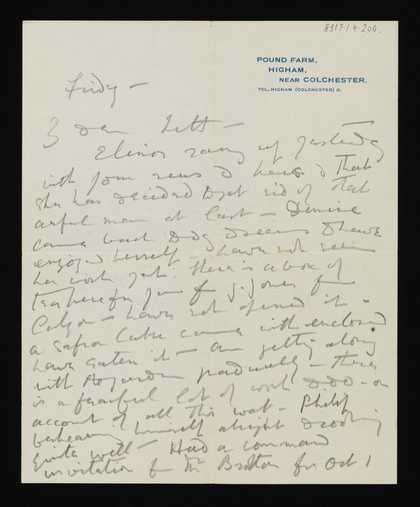 8317.1.4.200.
POUND FARM,
HIGHAM,
NEAR COLCHESTER.
TEL. HIGHAM (COLCHESTER) 2.
Friday –
Dear Lett –
Elinor rang up yesterday
with your news & that
she has decided to get rid of that
awful man at last – Denise
came back today seems to have
enjoyed herself – I have not seen
her work yet. There is a box of
for you from
– have not opened it –
a Saffron Cake came with enclosed
have eaten it – am getting along
with gradually – there
is a fearful lot of work to do – on
account of all this wet – Philip
behaving himself alright &
quite well – Had a command
invitation for Mr Britten for Oct 1